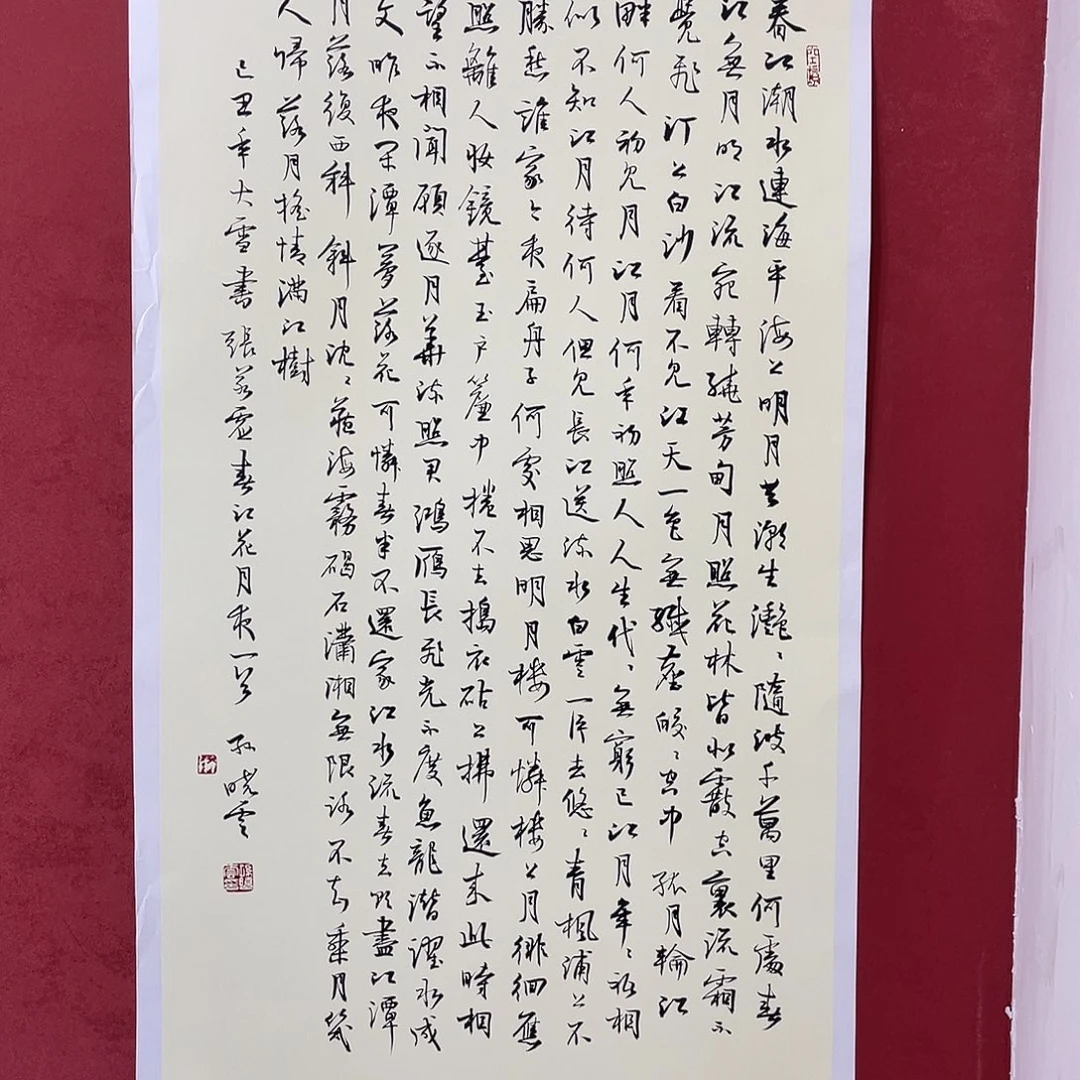 春江潮水連海平海上明月共潮生灩々隨波千萬里何處春
江無月明江流宛轉繞芳甸月照花林皆似霰空裏流霜不
覺飛汀上白沙看不見江天一色無纖塵皎々空中孤月輪江
畔何人初見月江月何年初照人人生代々無窮已江月年々祇相
似不知江月待何人但見長江送流水白雲一片去悠々青楓浦上不
勝愁誰家今夜扁舟子何處相思明月樓可憐樓上月徘徊應
照離人妝鏡臺玉戶簾中捲不去搗衣砧上拂還來此時相
望不相聞願逐月華流照君鴻雁長飛光不度魚龍潛躍水成
文昨夜閑潭夢落花可憐春半不還家江水流春去欲盡江潭
月落復西斜斜月沈々藏海霧碣石瀟湘無限路不知乘月幾
人歸落月搖情滿江樹
己丑年大雪書張若虛春江花月夜一首
孫曉雲